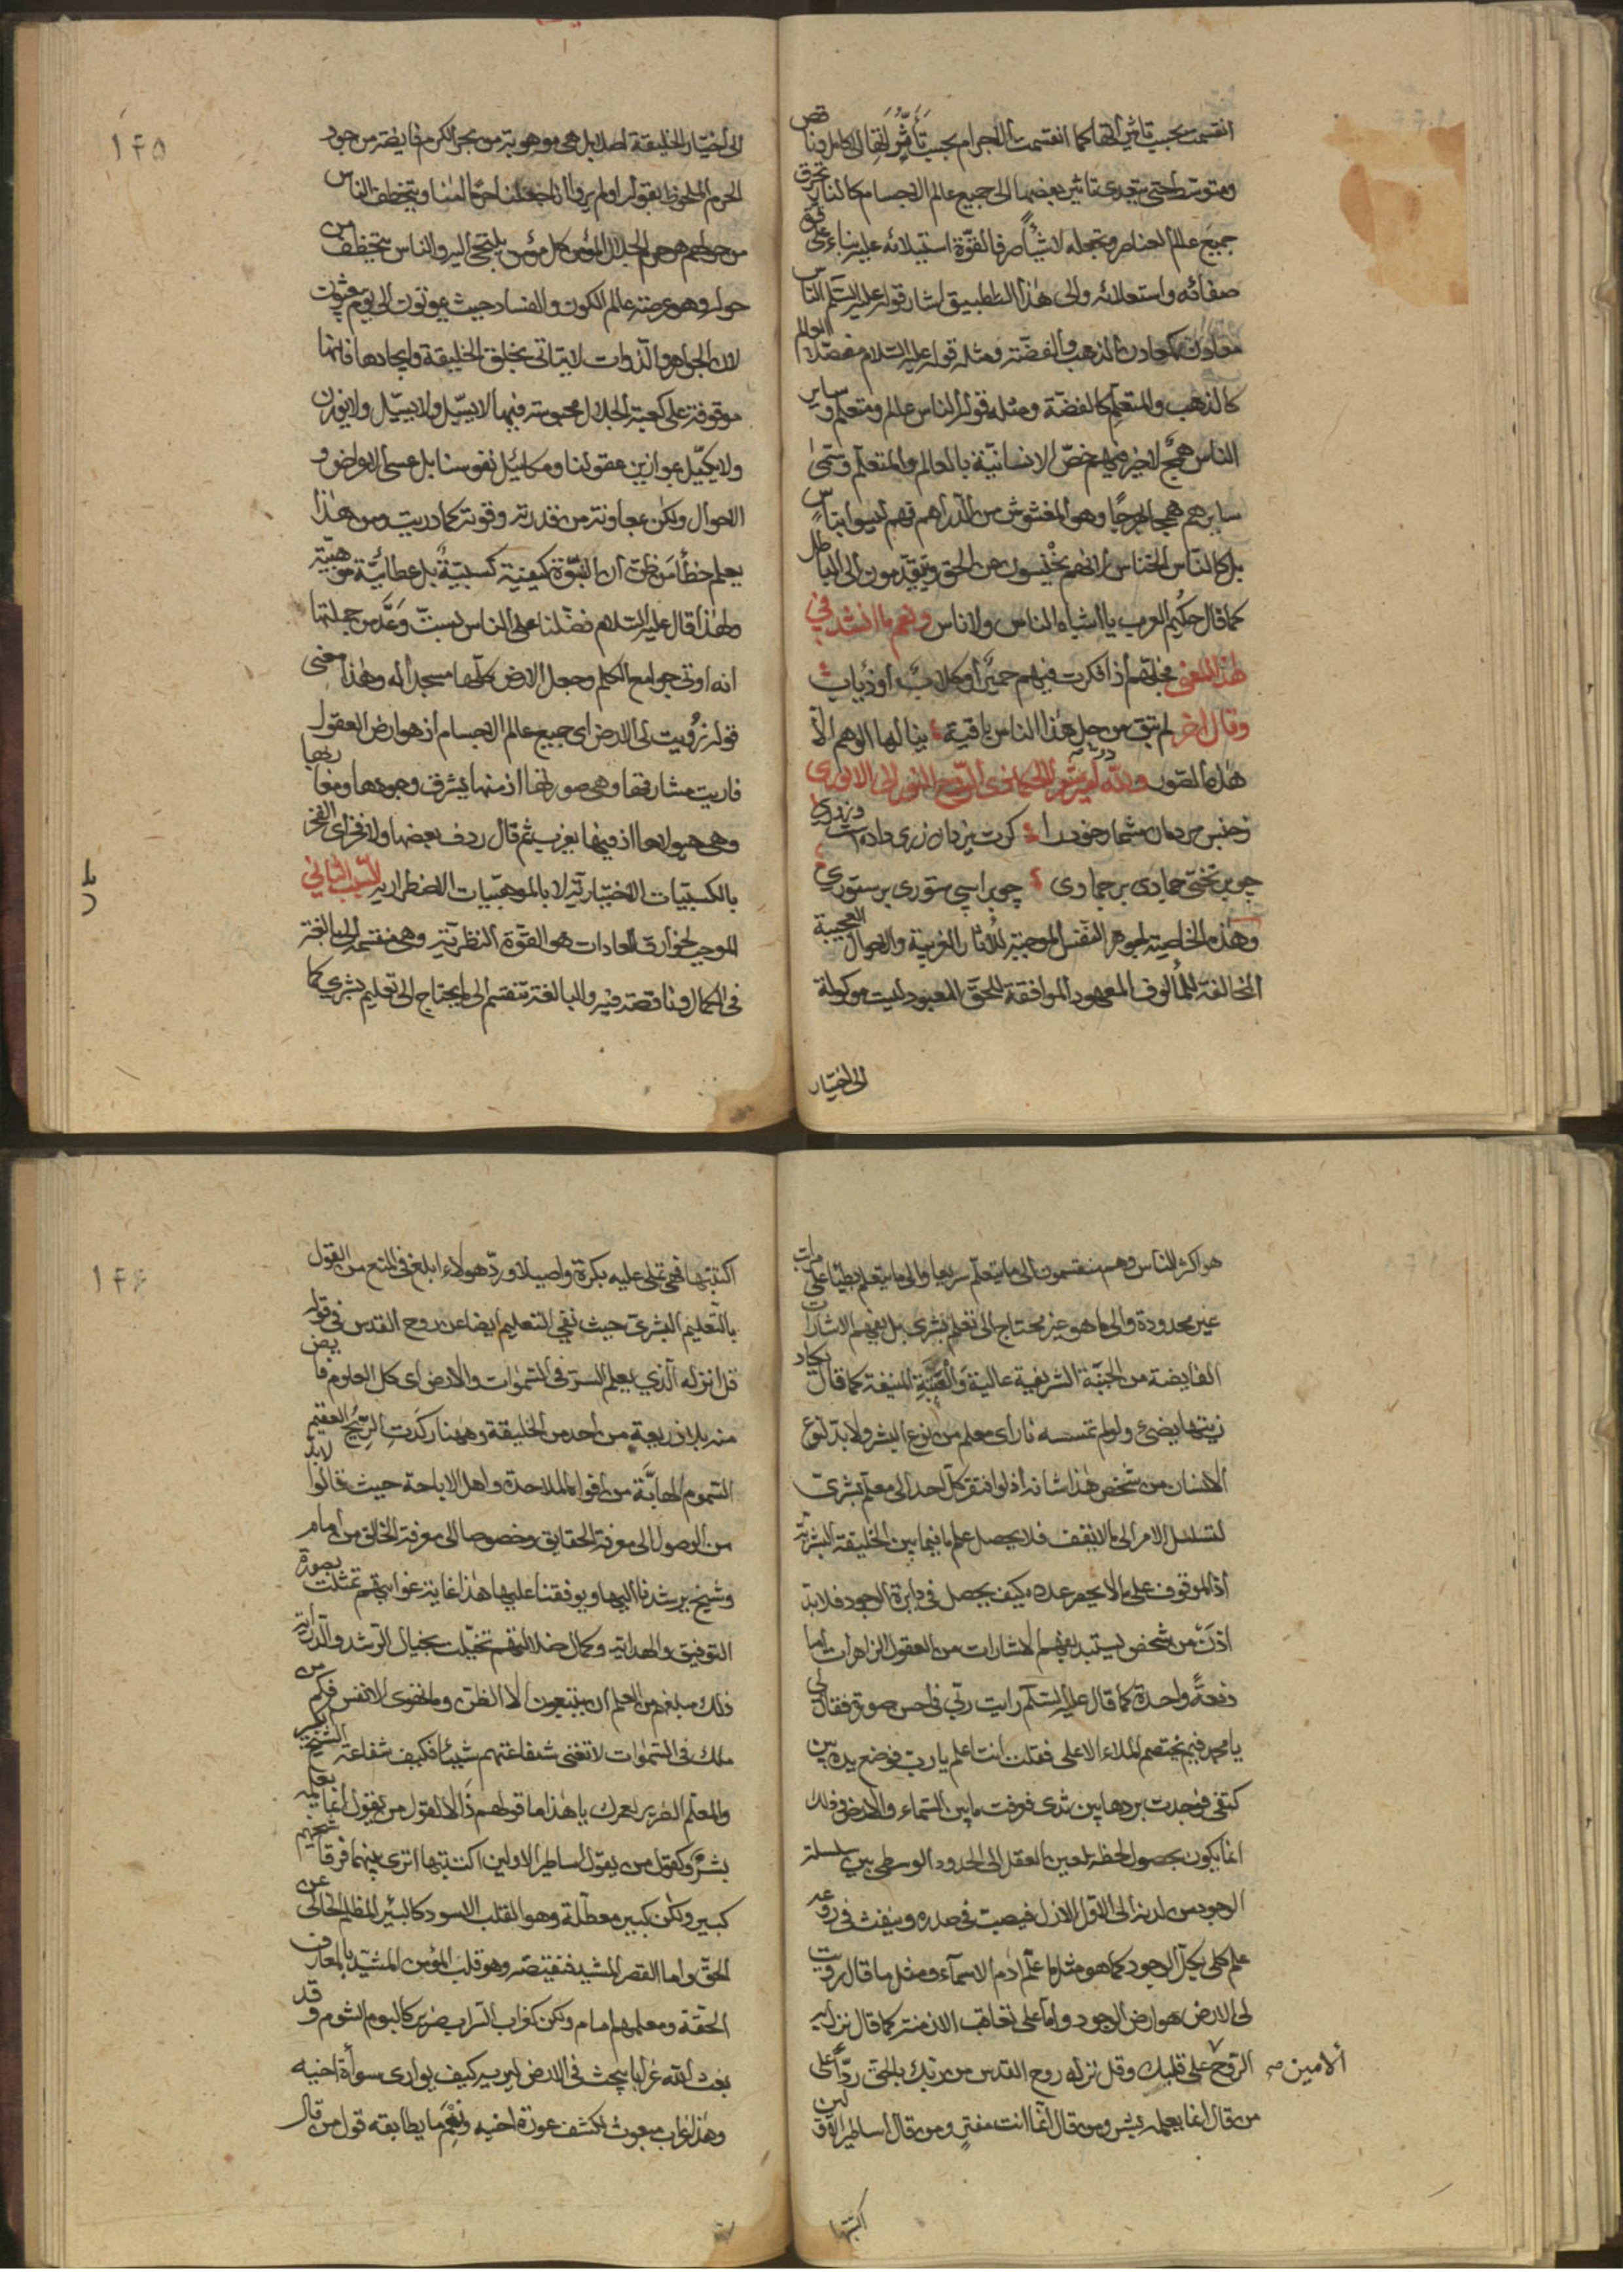 انقسمت بحسب تاثيراتها كما انقسمت الاجرام بحسب تأثّراتها الى كامل وناقص
ومتوسط حتى يتعدى تاثير بعضها الى جميع عالم الاجسام كالنار تحرق
جميع عالم العناصر وتجعله لا شيئاً صرفا لقوّة استيلائه عليه بناء على قوة
صفائه واستعلائه والى هذا التطبيق اشار قوله عليه السلم الناس
معادن كمعادن الذهب والفضّة ومثله قوله عليه السلام مفصّلا العالم
كالذهب والمتعلم كالفضة ومثله قوله الناس عالم ومتعلم وساير
الناس همج لا خير فيهم خصّ الانسانيّة بالعالم والمتعلم وسمّى
سايرهم همجا وهو المغشوش من الدراهم فهم ليسوا بناس
بل كالنّاس الخناس لانهم يخنسون عن الحق ويتقدمون الى الباطل
كما قال حكيم العرب يا اشباه الناس ولا ناس ونعم ما انشد في
هذا المعنى فجلّهم اذا فكرت فيهم حمير او كلاب او ذياب
وقال اخر لم تبق من جل هذا الناس باقية ينالها الوهم الّا
هذه الصور ولله در
ز جنس مردمان مشمار خود را كرت يزدان زرى داده است و زورى
چو بر تختى جمادى بر جمادى چو بر اسپى ستورى بر ستورى
وهذه الخاصية لجوهر النفس الموجبة للآثار الغريبة والاحوال العجيبة
المخالفة للمألوف المعهود الموافقة للحق المعبود ليست موكولة
الى اختيار
١٤٥
الى اختيار الخليقة اصلا بل هى موهوبة من بحر الكرم فايضة من جود
الحرم الملحوظ بقوله اولم يروا انّا جعلنا حرما آمنا ويتخطف الناس
من حولهم هو حرم الجلال المؤمن كل مؤمن يلتجى اليه والناس يتخطف من
حوله وهو عرصة عالم الكون والفساد حيث يموتون الى يوم
لان الجواهر والذوات لا يتاتى بخلق الخليقة وايجادها فانها
موقوفة على كعبة الجلال محبوسة فيها لا يسيّل ولا يوزن
ولا يكيّل بموازين عقولنا ومكائيل نفوسنا بل عسى الاعراض و
الاحوال ولكن بمعاونة من قدرته وقوته كما دريت ومن هذا
يعلم خطأ من ظنّ ان النبوّة كيفية كسبيّة بل عطائيّة موهبيّة
ولهذا قال عليه السلام فضّلنا على الناس بستّ وعدّ من جملتها
انه اوتى جوامع الكلم وجعل الارض كلّها مسجدا له وهذا معنى
قوله زُويت لى الارض اى جميع عالم الاجسام اذ هو ارض العقول
فاريت مشارقها وهى صورتها اذ منها يشرق وجودها ومغاربها
وهى هيولاها اذ فيها يغرب ثم قال ردف بعضها ولا فخر اى الفخر
بالكسبيّات الاختيارية لا بالموهبيّات الاضطرارية السبب الثاني
الموجب لخوارق العادات هو القوة النظرية وهى منقسمة الى بالغة
فى الكمال وناقصة فيه والبالغة تنقسم الى ما يحتاج الى تعليم بشرى كما
هو اكثر الناس وهم منقسمون الى ما يتعلم سريعا والى ما يتعلم بطيئا على مراتب
غير محدودة والى ما هو غير محتاج الى تعلم بشرى بل يفهم الاشارات
الفايضة من الجنبة الشريفية عالية والعتبة المنيفة كما قال يكاد
زيتها يضئ ولو لم تمسسه نار اى معلم من نوع البشر ولا بدّ لنوع
الانسان من شخص هذا شانه اذ لو افتقر كل احد الى معلّم بشرى
لتسلسل الامر الى ما لا يقف فلا يحصل علم ما فيما بين الخليقة البشرية
اذ الموقوف على ما لا يحصر عدده كيف يحصل فى دايرة الوجود فلا بد
اذن من شخص يستبد بفهم الاشارات من العقول الزاهرات اما
دفعة واحدة كما قال عليه السلم رايت ربّي فى احسن صورة فقال لى
يا محمد فيم يختصم الملاء الاعلى فقلت انت اعلم يا رب فوضع يده بين
كتفى فوجدت بردها بين ثدى فعرفت ما بين السماء والارض وذلك
انما يكون بحصول لحظة لعين العقل الى الحدود الوسطى بين سلسلة
الوجود من لدنه الى الاول الازل فيصيب فى حدسه وينفث فى روعه
علم كلى بكل الوجود كما هو مثل ما علّم ادم الاسمآء ومثل ما قال زويت
لى الارض هو ارض الوجود واما على تعاقب الازمنة كما قال نزل به
الروح على قلبك وقل نزله روح القدس من ربك بالحق ردّا على
الامين صح
من قال انما يعلمه بشر ومن قال انما انت مفتر ومن قال اساطير الاولين
اكتتبها
١٤٦
اكتتبها فهى تملى عليه بكرة واصيلا وردّ هولاء ابلغ فى المنع من القول
بالتعليم البشرى حيث نفى التعليم ايضا عن روح القدس فى قوله
قل انزله الذي يعلم السرّ فى السموات والارض اى كل العلوم فايض
منه بلا ذريعة من احد من الخليقة وههنا ركدت الريح العقيم
السموم الهابّة من افواه الملاحدة واهل الاباحة حيث قالوا لا بد
من الوصول الى معرفة الحقايق وخصوصا الى معرفة الخالق من امام
وشيخ يرشدنا اليها ويوفقنا عليها هذا غاية غوايتهم تمثلت بصورة
التوفيق والهداية وكمال ضلالتهم تخيّلت بخيال الرشد والدراية
ذلك مبلغهم من العلم ان يتبعون الا الظن وما تهوى الانفس فكم من
ملك فى السموات لا تغنى شفاعتهم شيئا فكيف شفاعة الشيخ
والمعلّم الضرير لعمرك يا هذا ما قولهم ذا الا كقول من يقول انما يعلمه
بشر وكقول من يقول اساطير الاولين اكتتبها اترى بينهما فرقا
كبير ولكن كبير معطلة وهو القلب الاسود كالبئر المظلم الخالى عن
الحق واما القصر المشيد فنقيضه وهو قلب المؤمن المشيّد بالمعارف
الحقّة ومعلمهم امام ولكن كغراب التراب ضرير كالبوم الشوم وقد
بعث الله غرابا يبحث فى الارض ليريه كيف يوارى سوأة اخيه
وهذا غراب مبعوث لكشف عورة اخيه ونعم ما يطابقه قول من قال